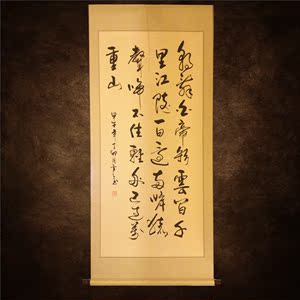 朝辭白帝彩雲間千
里江陵一日還兩岸猿
聲啼不住輕舟已過萬
重山
甲午年